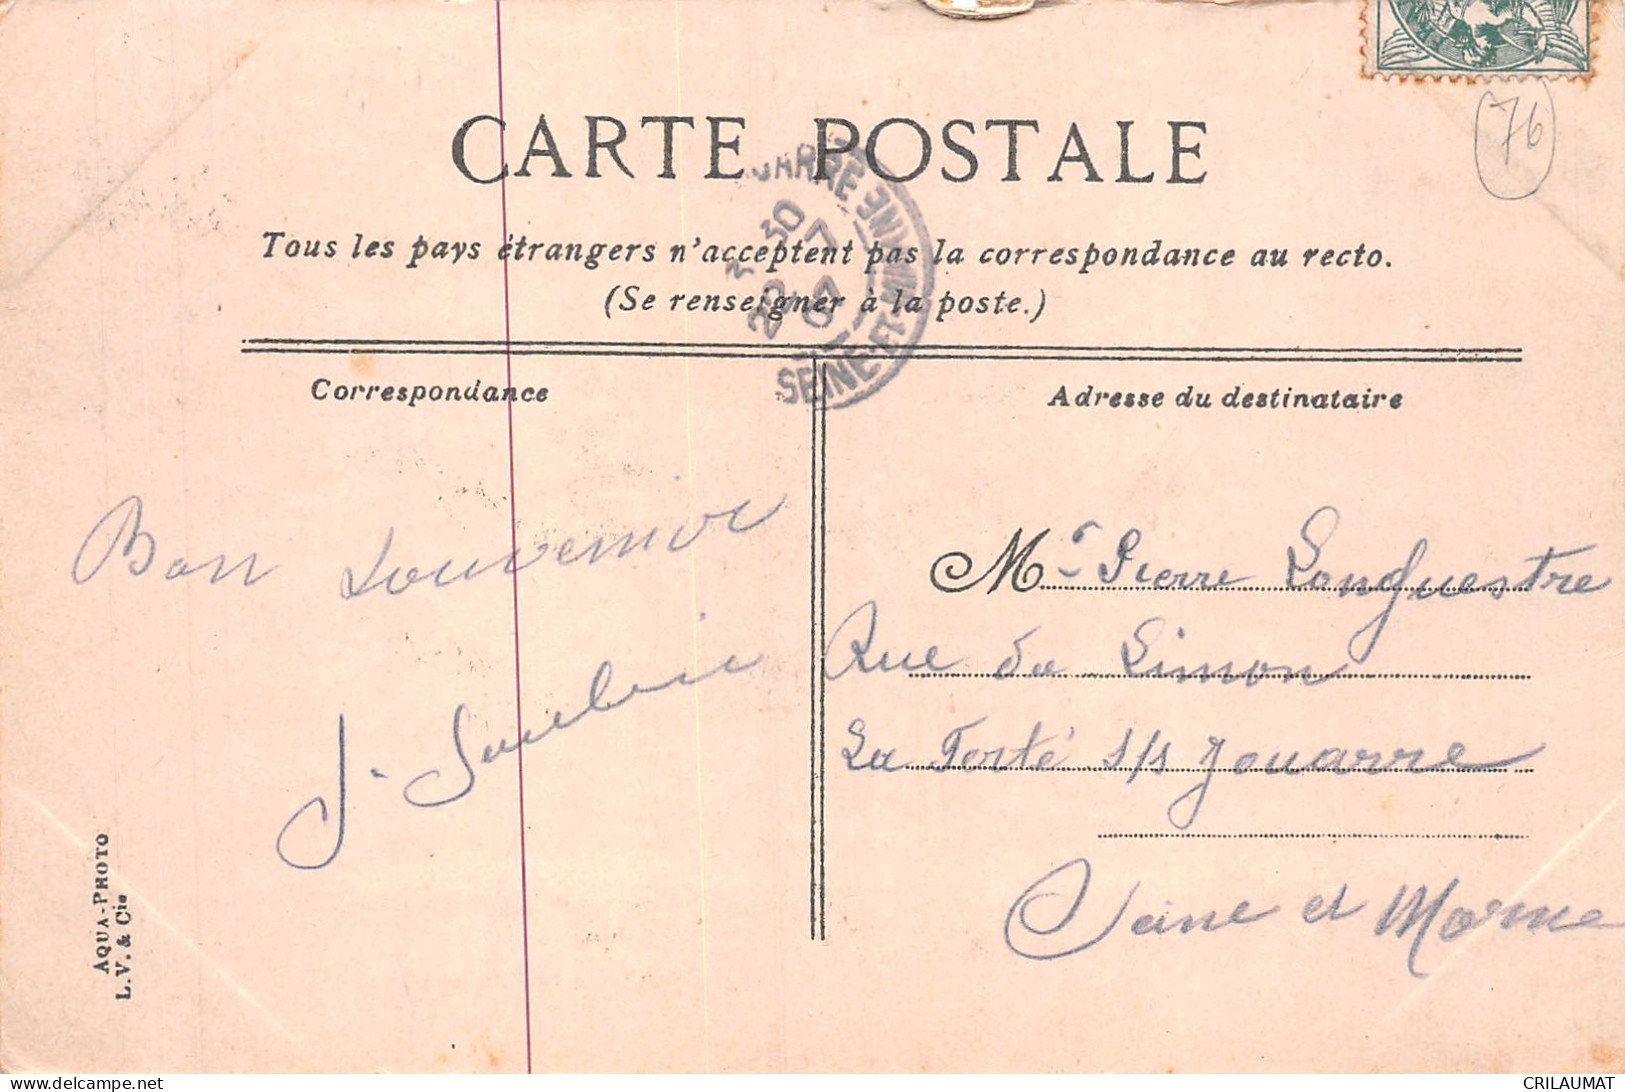 CARTE POSTALE
76
Tous les pays étrangers n'acceptent pas la correspondance au recto.
(Se renseigner à la poste.)
3 30
22 7 07
SEINE-ET-MARNE
Correspondance
Adresse du destinataire
Bon Souvenir
J.
Mr Pierre Longuestre
Rue du Limon
La Ferté s/s Jouarre
Seine et Marne
AQUA-PHOTO
L.V. & Cie
CRILAUMAT